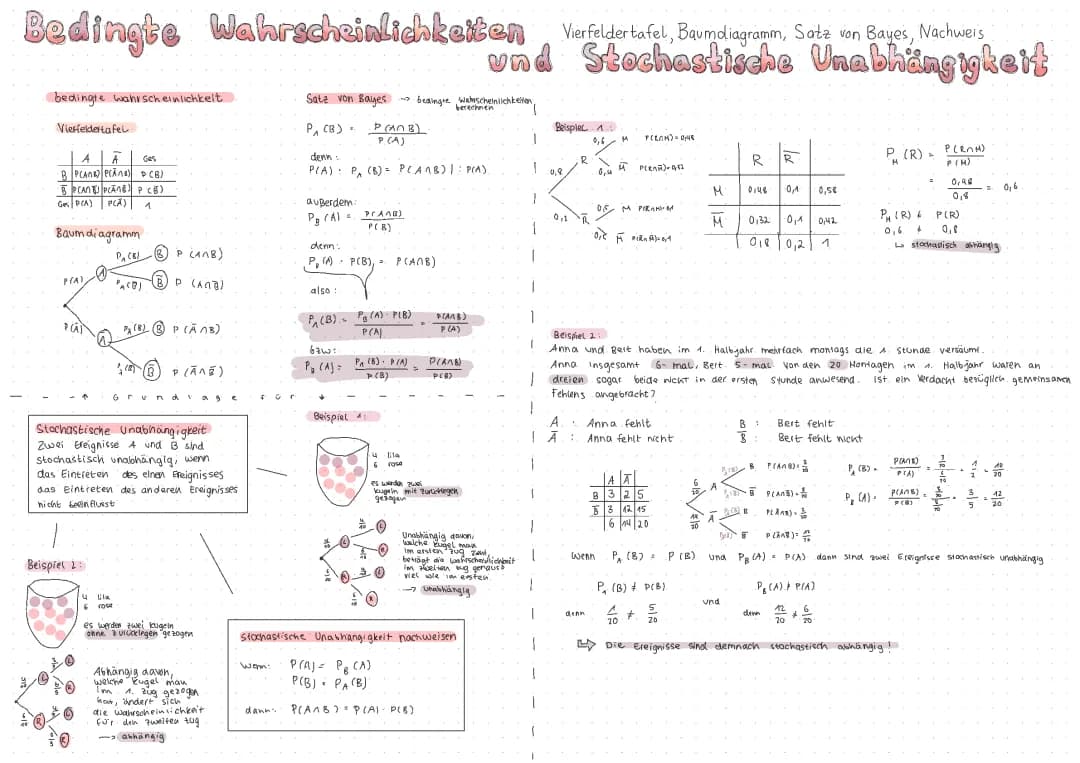 Bedingte Wahrscheinlichkeiten
Vierfeldertafel, Baumdiagramm, Satz von Bayes, Nachweis
und Stochastische Unabhängigkeit
bedingte Wahrscheinlichkeit
Vierfeldertafel
A Ā Ges
B P(A∩B) P(Ā∩B) P(B)
B̄ P(A∩B̄) P(Ā∩B̄) P(B̄)
Ges P(A) P(Ā) 1
Baumdiagramm
P(A) A P_A(B) B P(A∩B)
P_A(B̄) B̄ P(A∩B̄)
P(Ā) Ā P_Ā(B) B P(Ā∩B)
P_Ā(B̄) B̄ P(Ā∩B̄)
Satz von Bayes → bedingte Wahrscheinlichkeiten
berechnen
P_A(B) = P(A∩B) / P(A)
denn:
P(A) · P_A(B) = P(A∩B) | : P(A)
außerdem:
P_B(A) = P(A∩B) / P(B)
denn:
P_B(A) · P(B) = P(A∩B)
also:
P_A(B) = P_B(A) · P(B) / P(A) = P(A∩B) / P(A)
bzw:
P_B(A) = P_A(B) · P(A) / P(B) = P(A∩B) / P(B)
Grundlage für
Stochastische Unabhängigkeit
Zwei Ereignisse A und B sind
stochastisch unabhängig, wenn
das Eintreten des einen Ereignisses
das Eintreten des anderen Ereignisses
nicht beeinflusst
Beispiel 1:
4 lila
6 rosa
es werden zwei
Kugeln mit zurücklegen
gezogen
Unabhängig davon,
welche Kugel man
im ersten Zug zieht,
beträgt die Wahrscheinlichkeit
im zweiten Zug genauso
viel wie im ersten.
→ unabhängig
Beispiel 2:
4 lila
6 rosa
es werden zwei Kugeln
ohne zurücklegen gezogen
Abhängig davon,
welche Kugel man
im 1. Zug gezogen
hat, ändert sich
die Wahrscheinlichkeit
für den zweiten Zug
→ abhängig
Stochastische Unabhängigkeit nachweisen
wenn: P(A) = P_B(A)
P(B) = P_A(B)
dann: P(A∩B) = P(A) · P(B)
Beispiel 1:
0,8 R 0,6 M P(R∩M)=0,48
0,4 M̄ P(R∩M̄)=0,32
0,2 R̄ 0,5 M P(R̄∩M)=0,1
0,5 M̄ P(R̄∩M̄)=0,1
R R̄
M 0,48 0,1 0,58
M̄ 0,32 0,1 0,42
0,8 0,2 1
P_M(R) = P(R∩M) / P(M)
= 0,48 / 0,8 = 0,6
P_M(R) ≠ P(R)
0,6 ≠ 0,8
↳ stochastisch abhängig
Beispiel 2:
Anna und Bert haben im 1. Halbjahr mehrfach montags die 1. Stunde versäumt.
Anna insgesamt 6-mal, Bert 5-mal. Von den 20 Montagen im 1. Halbjahr waren an
dreien sogar beide nicht in der ersten Stunde anwesend. Ist ein Verdacht bezüglich gemeinsamen
Fehlens angebracht?
A : Anna fehlt B : Bert fehlt
Ā : Anna fehlt nicht B̄ : Bert fehlt nicht
A Ā
B 3 2 5
B̄ 3 12 15
6 14 20
6/20 A B P(A∩B)=3/20
B̄ P(A∩B̄)=3/20
14/20 Ā B P(Ā∩B)=2/20
B̄ P(Ā∩B̄)=12/20
P_A(B) = P(A∩B) / P(A) = 3/20 / 6/20 = 1/2 = 10/20
P_B(A) = P(A∩B) / P(B) = 3/20 / 5/20 = 3/5 = 12/20
Wenn P_A(B) = P(B) und P_B(A) = P(A) dann sind zwei Ereignisse stochastisch unabhängig
P_A(B) ≠ P(B) und P_B(A) ≠ P(A)
denn 1/20 ≠ 5/20 denn 12/20 ≠ 6/20
⇨ Die Ereignisse sind demnach stochastisch abhängig!